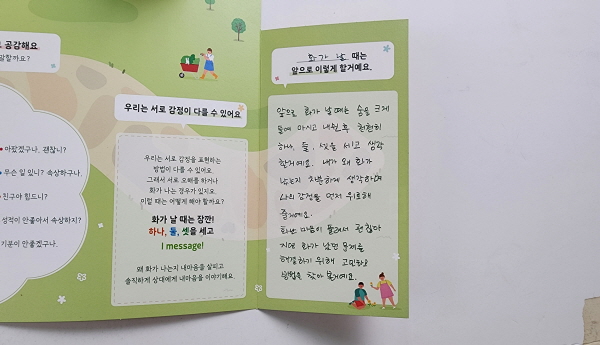 공감해요
말할까요?
아팠겠구나, 괜찮니?
무슨 일 있니? 속상하구나.
친구야 힘드니?
성적이 안좋아서 속상하지?
기분이 안좋겠구나.
우리는 서로 감정이 다를 수 있어요
우리는 서로 감정을 표현하는
방법이 다를 수 있어요.
그래서 서로 오해를 하거나
화가 나는 경우가 있지요.
이럴 때는 어떻게 해야 할까요?
화가 날 때는 잠깐!
하나, 둘, 셋을 세고
I message!
왜 화가 나는지 내마음을 살피고
솔직하게 상대에게 내마음을 이야기해요.
화가 날 때는
앞으로 이렇게 할거예요.
앞으로 화가 날 때는 숨을 크게
들이 마시고 내쉰 후 천천히
하나, 둘, 셋을 세고 생각
할거예요. 내가 왜 화가
났는지 차분하게 생각하며
나의 감정을 먼저 위로해
줄거예요.
화난 마음이 풀려서 편해
지면 화가 났던 문제를
해결하기 위해 고민하고
방법을 찾아 볼거예요.